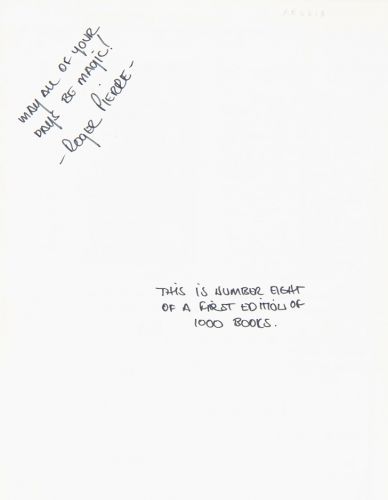 MAY ALL OF YOUR
DAYS BE MAGIC!
- ROGER PIERRE -
THIS IS NUMBER EIGHT
OF A FIRST EDITION OF
1000 BOOKS.